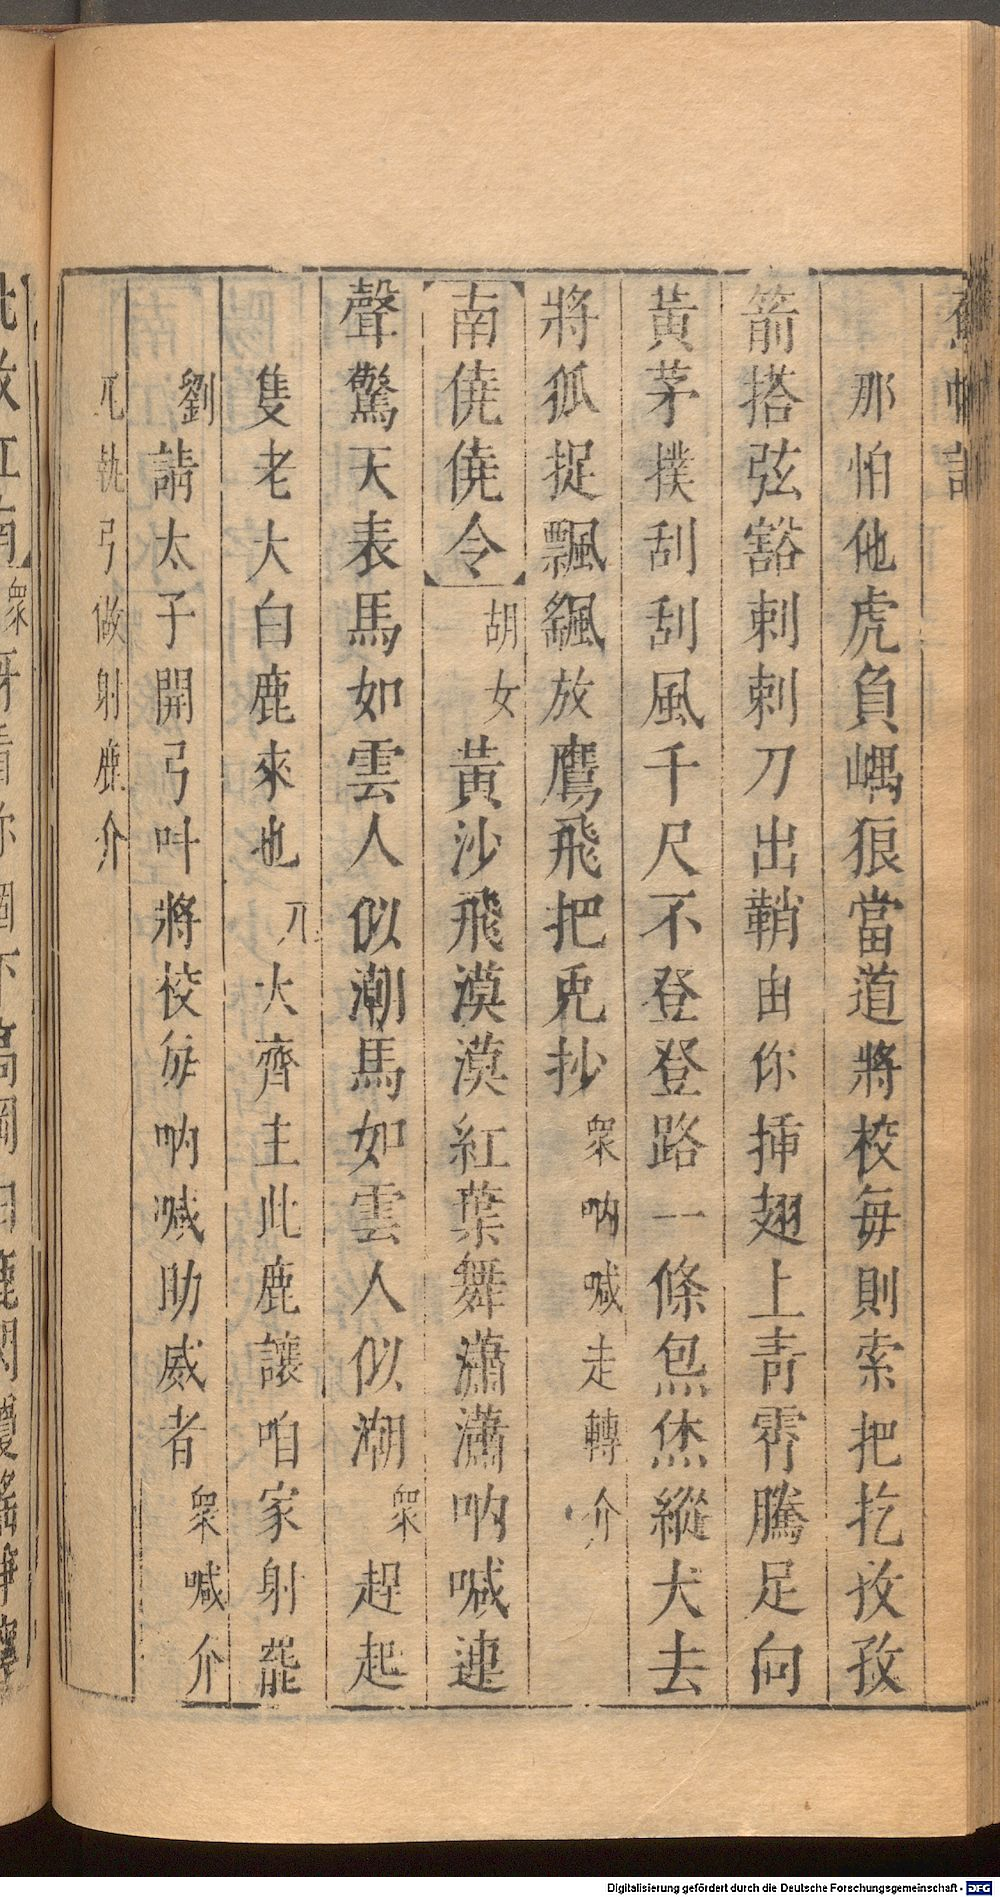 蕉帕記
那怕他虎負嵎狼當道將校每則索把扢孜孜
箭搭弦豁剌剌刀出鞘由你揷翅上靑霄騰足向
黃茅撲刮刮風千尺不登登路一條烋烋縱犬去
將狐捉飄颻放鷹飛把兎抄衆吶喊走轉介
【南僥僥令】胡女黃沙飛漠漠紅葉舞瀟瀟吶喊連
聲驚天表馬如雲人似潮馬如雲人似潮衆趕起
隻老大白鹿來也兀大齊主此鹿讓咱家射罷
劉請太子開弓叫將校每吶喊助威者衆喊介
兀執弓做射鹿介
北收江南】衆呀看你個下高岡白鹿閃
Digitalisierung gefördert durch die Deutsche Forschungsgemeinschaft - DFG